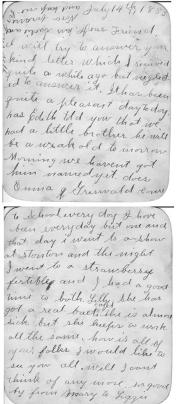 July 14 1883
Dear Friend,
I will try to answer your
kind letter which I received
quite a while ago but neglected
it to answer it. It has been
quite a pleasant day to day
has Edith told you that we
had a little brother he will
be a week old to morrow
morning we havent got
him named yet does
Emma Grunwald come
to school every day I have
been everyday but one and
that day i went to a show
at Stockton and the night
I went to a strawberry
festible and I had a good
time to both. Lilly she has
got a real bad cold she is almost
sick but she keeps to work
all the same. how is all of
your folks I would like to
see you all. Well I cant
think of any more. so good
by from Mary to Lizzie